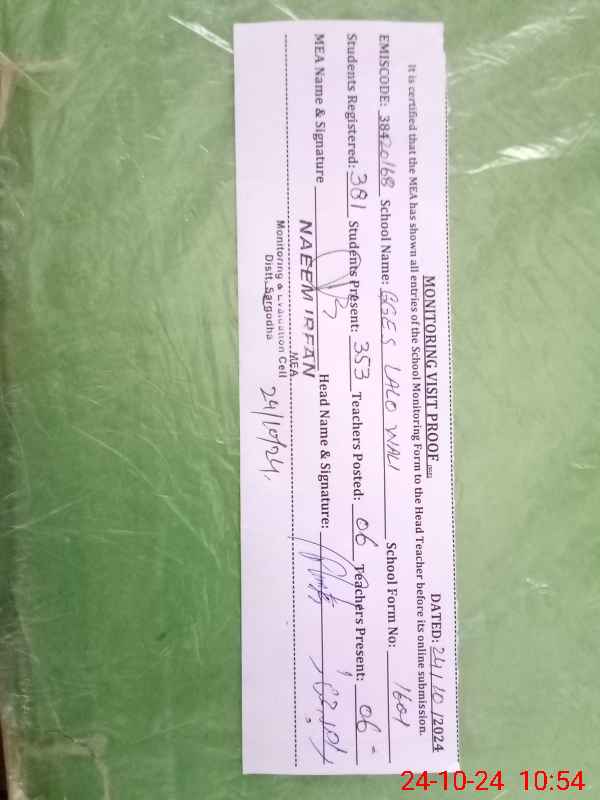 MONITORING VISIT PROOF DATED: 24/10/2024
It is certified that the MEA has shown all entries of the School Monitoring Form to the Head Teacher before its online submission.
EMISCODE: 38420168 School Name: GGES LALO WALI School Form No: 1601
Students Registered: 381 Students Present: 353 Teachers Posted: 06 Teachers Present: 06
MEA Name & Signature Head Name & Signature:
NAEEM IRFAN
MEA
Monitoring & Evaluation Cell
Distt. Sargodha
24/10/24
24-10-24 10:54